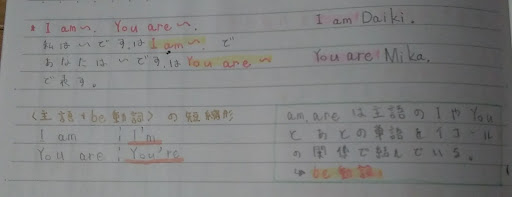 * I am ~. You are ~.
私は~です.は I am ~. で
あなたは~です.は You are ~
で表す。
I am Daiki.
You are Mika.
<主語+be動詞> の短縮形
I am I'm
You are You're
am, are は主語の I や You
と あとの単語をイコール
の関係で結んでいる。
↳ be動詞